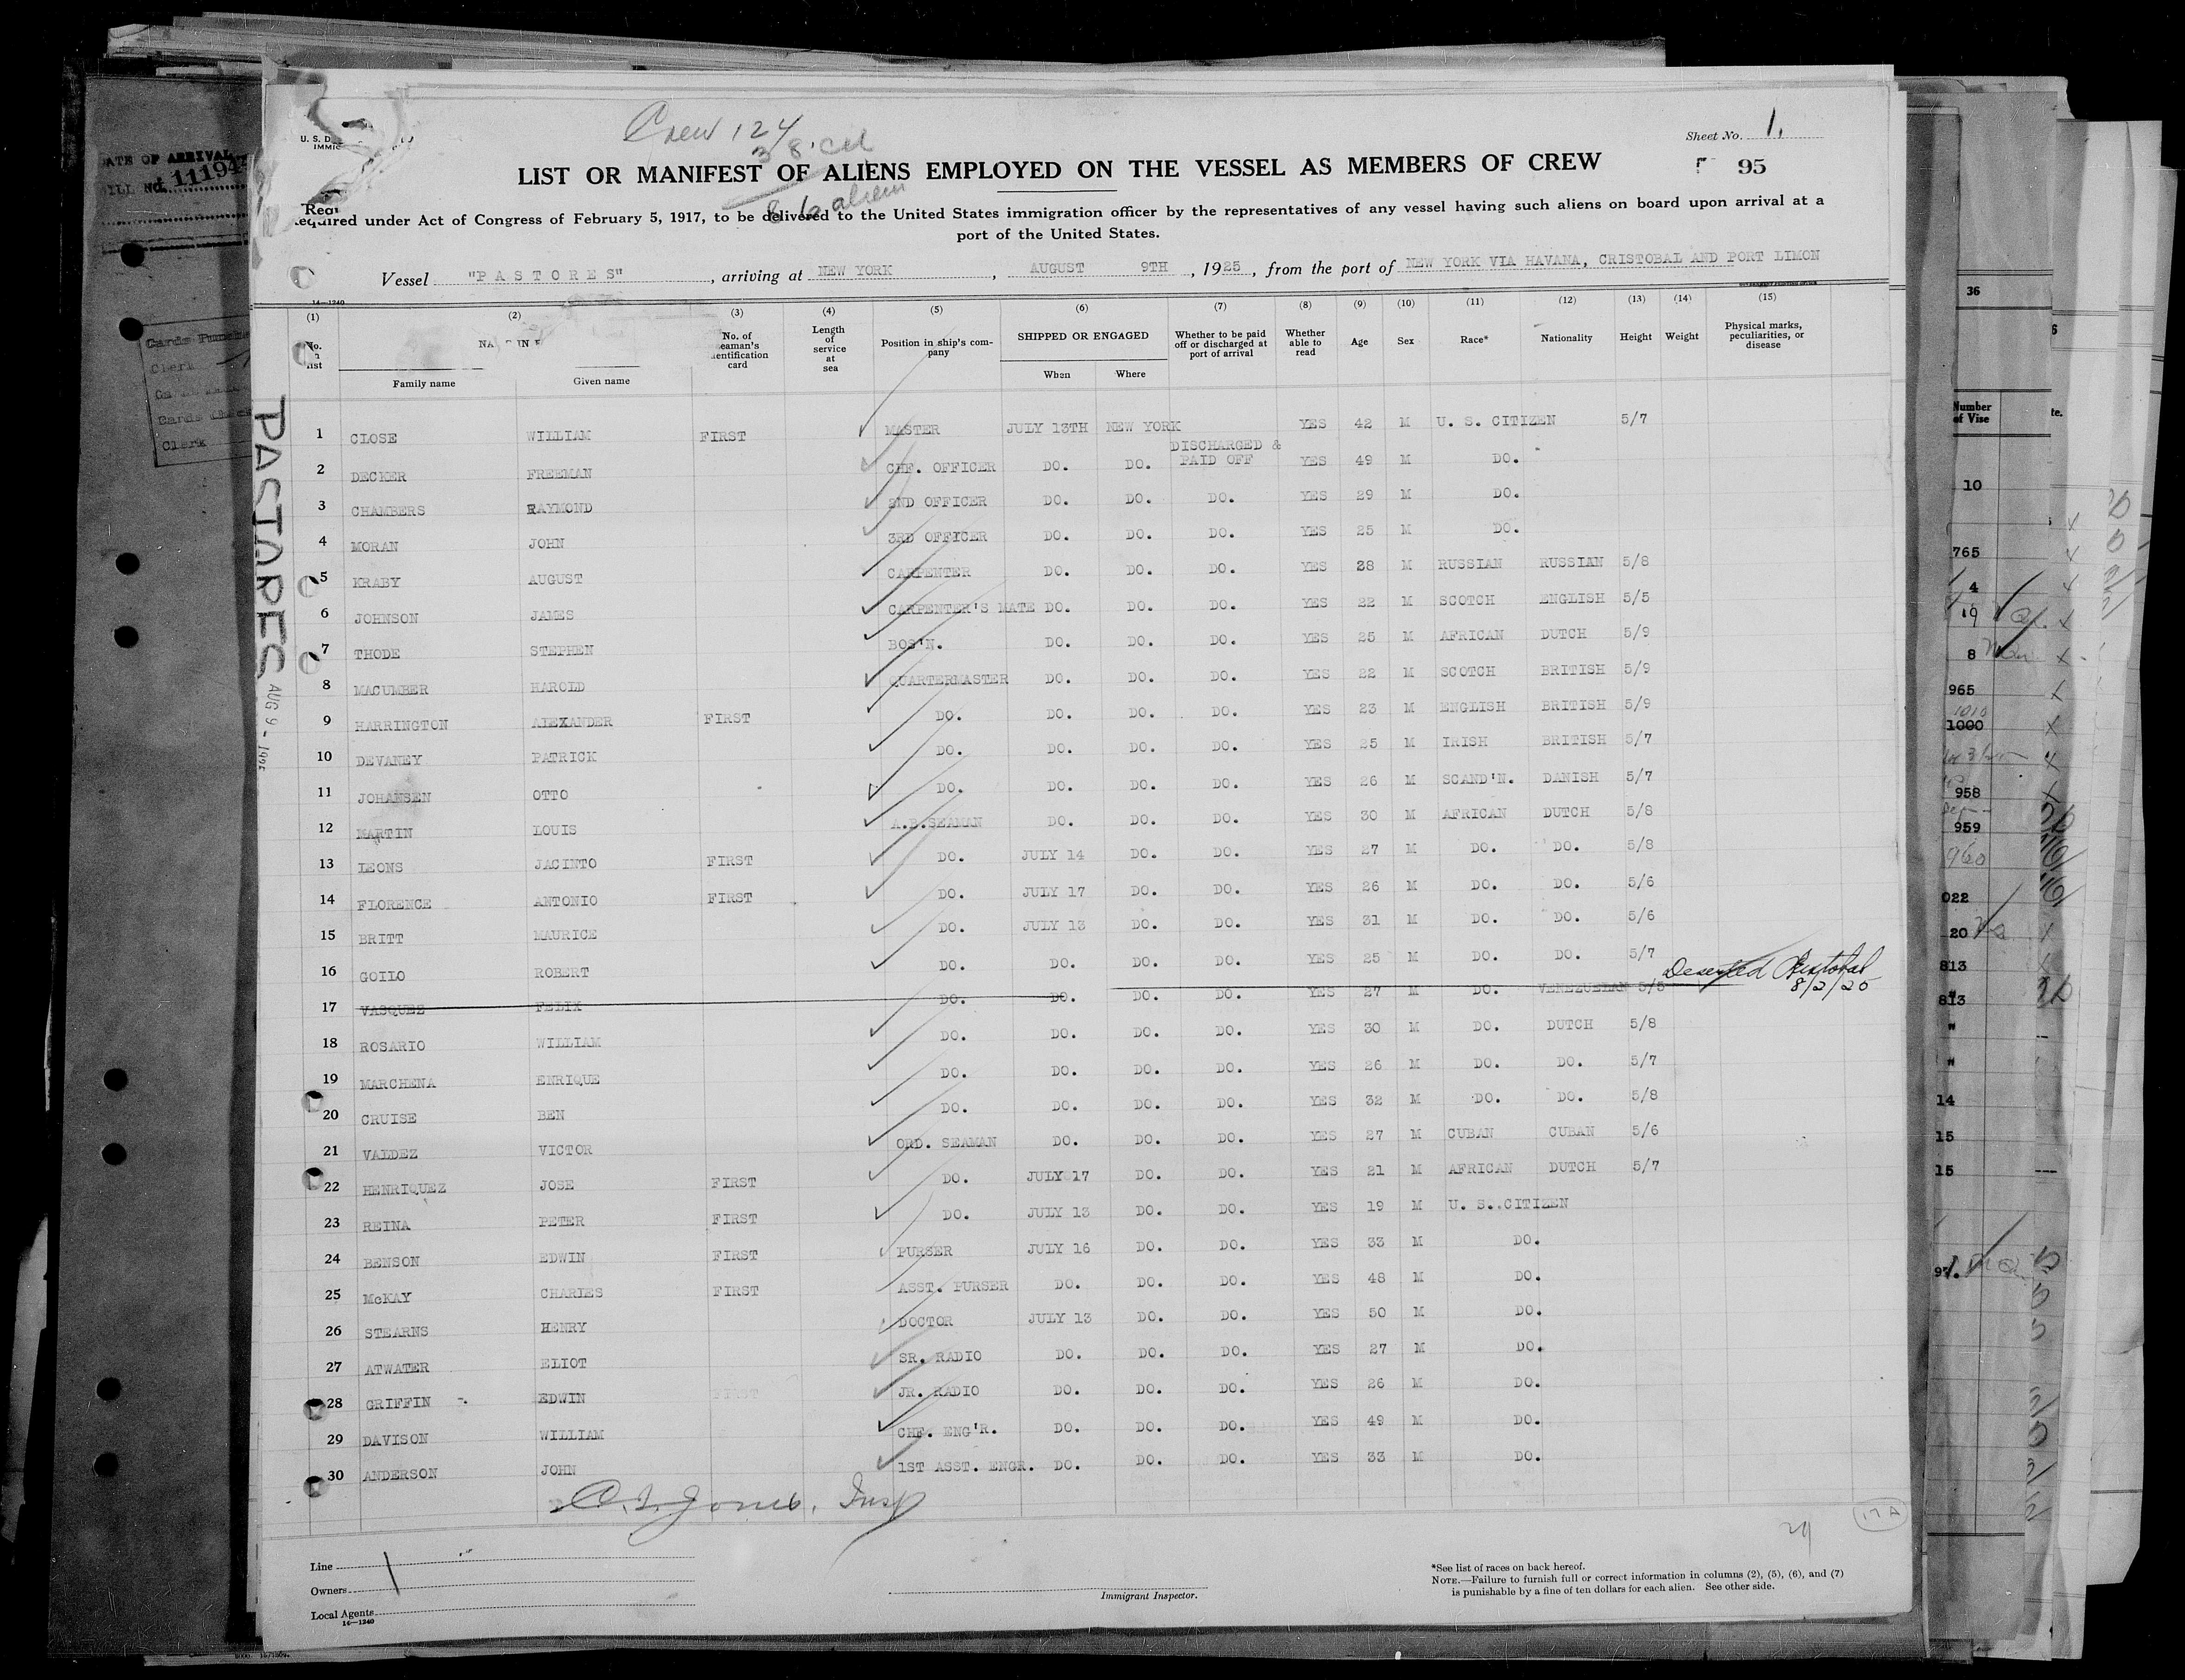 Crew 124
38 cit
86 alien
Sheet No. 1.
95
U. S. D
IMMIG
LIST OR MANIFEST OF ALIENS EMPLOYED ON THE VESSEL AS MEMBERS OF CREW
Required under Act of Congress of February 5, 1917, to be delivered to the United States immigration officer by the representatives of any vessel having such aliens on board upon arrival at a
port of the United States.
Vessel "PASTORES", arriving at NEW YORK, AUGUST 9TH, 1925, from the port of NEW YORK VIA HAVANA, CRISTOBAL AND PORT LIMON
14—1240
(1) (2) (3) (4) (5) (6) (7) (8) (9) (10) (11) (12) (13) (14) (15)
No. of seaman's identification card
Length of service at sea
Position in ship's company
SHIPPED OR ENGAGED
Whether to be paid off or discharged at port of arrival
Whether able to read
Age Sex Race* Nationality Height Weight
Physical marks, peculiarities, or disease
Family name Given name When Where
1 CLOSE WILLIAM FIRST MASTER JULY 13TH NEW YORK YES 42 M U. S. CITIZEN 5/7
2 DECKER FREEMAN CHF. OFFICER DO. DO. DISCHARGED & PAID OFF YES 49 M DO.
3 CHAMBERS RAYMOND 2ND OFFICER DO. DO. DO. YES 29 M DO.
4 MORAN JOHN 3RD OFFICER DO. DO. DO. YES 25 M DO.
5 KRABY AUGUST CARPENTER DO. DO. DO. YES 28 M RUSSIAN RUSSIAN 5/8
6 JOHNSON JAMES CARPENTER'S MATE DO. DO. DO. YES 22 M SCOTCH ENGLISH 5/5
7 THODE STEPHEN BOS'N. DO. DO. DO. YES 25 M AFRICAN DUTCH 5/9
8 MACUMBER HAROLD QUARTERMASTER DO. DO. DO. YES 22 M SCOTCH BRITISH 5/9
9 HARRINGTON ALEXANDER FIRST DO. DO. DO. DO. YES 23 M ENGLISH BRITISH 5/9
10 DEVANEY PATRICK DO. DO. DO. DO. YES 25 M IRISH BRITISH 5/7
11 JOHANSEN OTTO DO. DO. DO. DO. YES 26 M SCAND'N. DANISH 5/7
12 MARTIN LOUIS A.B.SEAMAN DO. DO. DO. YES 30 M AFRICAN DUTCH 5/8
13 LEONS JACINTO FIRST DO. JULY 14 DO. DO. YES 27 M DO. DO. 5/8
14 FLORENCE ANTONIO FIRST DO. JULY 17 DO. DO. YES 26 M DO. DO. 5/6
15 BRITT MAURICE DO. JULY 13 DO. DO. YES 31 M DO. DO. 5/6
16 GOILO ROBERT DO. DO. DO. DO. YES 25 M DO. DO. 5/7
17 VASQUEZ FELIX DO. DO. DO. DO. YES 27 M DO. VENEZUELAN 5/5 Deserted Cristobal 8/2/25
18 ROSARIO WILLIAM DO. DO. DO. DO. YES 30 M DO. DUTCH 5/8
19 MARCHENA ENRIQUE DO. DO. DO. DO. YES 26 M DO. DO. 5/7
20 CRUISE BEN DO. DO. DO. DO. YES 32 M DO. DO. 5/8
21 VALDEZ VICTOR ORD. SEAMAN DO. DO. DO. YES 27 M CUBAN CUBAN 5/6
22 HENRIQUEZ JOSE FIRST DO. JULY 17 DO. DO. YES 21 M AFRICAN DUTCH 5/7
23 REINA PETER FIRST DO. JULY 13 DO. DO. YES 19 M U. S. CITIZEN
24 BENSON EDWIN FIRST PURSER JULY 16 DO. DO. YES 33 M DO.
25 McKAY CHARLES FIRST ASST. PURSER DO. DO. DO. YES 48 M DO.
26 STEARNS HENRY DOCTOR JULY 13 DO. DO. YES 50 M DO.
27 ATWATER ELIOT SR. RADIO DO. DO. DO. YES 27 M DO.
28 GRIFFIN EDWIN FIRST JR. RADIO DO. DO. DO. YES 26 M DO.
29 DAVISON WILLIAM CHF. ENG'R. DO. DO. DO. YES 49 M DO.
30 ANDERSON JOHN 1ST ASST. ENGR. DO. DO. DO. YES 33 M DO.
PASTORES AUG 9 - 1925
Jones, Insp
29
17 A
Line
Owners
Local Agents
14—1240
Immigrant Inspector.
*See list of races on back hereof.
NOTE.—Failure to furnish full or correct information in columns (2), (5), (6), and (7)
is punishable by a fine of ten dollars for each alien. See other side.
DATE OF ARRIVAL
Cards Punched
Clerk
Clerk
36
Number
of Vise
10
765
4
19
8
965
1010
1000
958
959
960
022
20
813
813
14
15
15